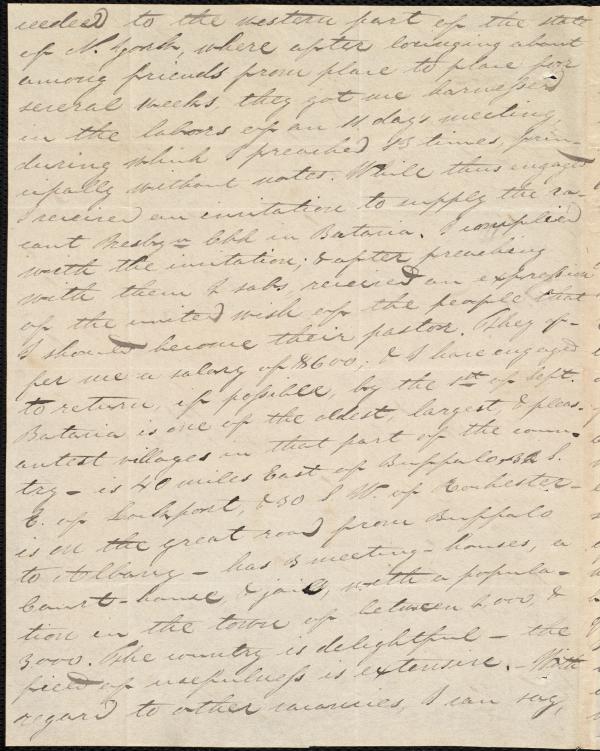 ceeded to the western part of the state
of N. York, where after lounging about
among friends from place to place for
several weeks, they got me harnessed
in the labors of an 11 days meeting,
during which I preached 13 times, prin-
cipally without notes. While thus engaged
I received an invitation to supply the va-
cant Presbyn Chh in Batavia. I complied
with the invitation; & after preaching
with them 2 sabs, received an expression
of the united wish of the people that
I should become their pastor. They of-
fer me a salary of $600; & I have engaged
to return, if possible, by the 1st of Sept.
Batavia is one of the oldest, largest, & pleas-
antest villages in that part of the coun-
try - is 40 miles East of Buffalo, S.
E. of Lockport, & 30 S. W. of Rochester -
is on the great road from Buffalo
to Albany - has 3 meeting-houses, a
Court-house, & jail, with a popula-
tion in the town of between 2,000 &
3000. The country is delightful - the
field of usefulness is extensive. - With
regard to other vacancies, I can say,